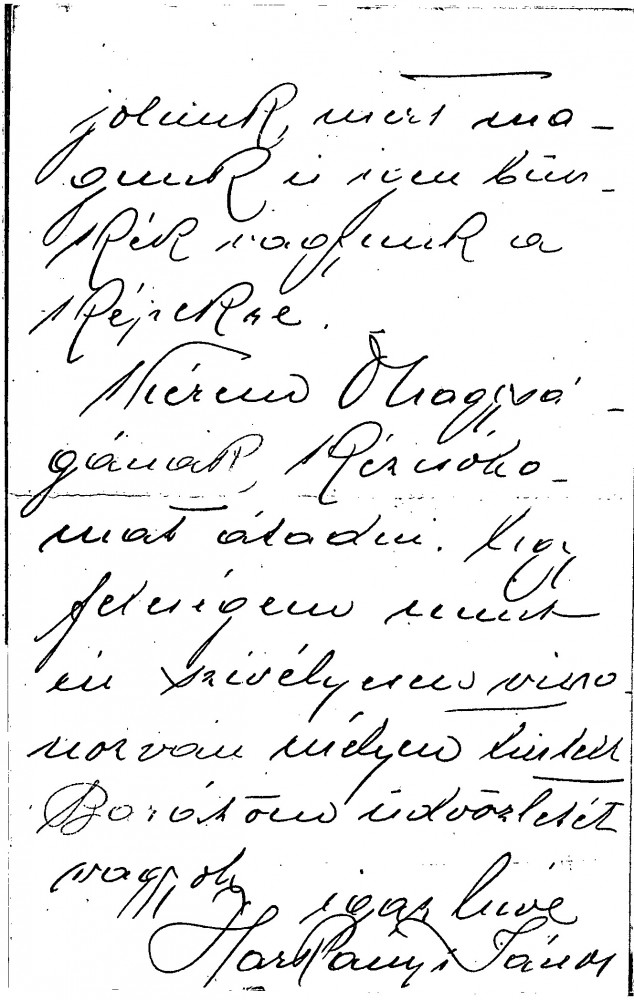 jolunk, mert ma-
gunk is igen büsz-
kék vagyunk a
képekre.
Kérem Őnagysá-
gának, kézcsóko-
mat átadni. Úgy
feleségem mint
én szivélyesen viszo
nozván mélyen tisztelt
Barátom üdvözletét
vagyok igaz híve
Harkányi János